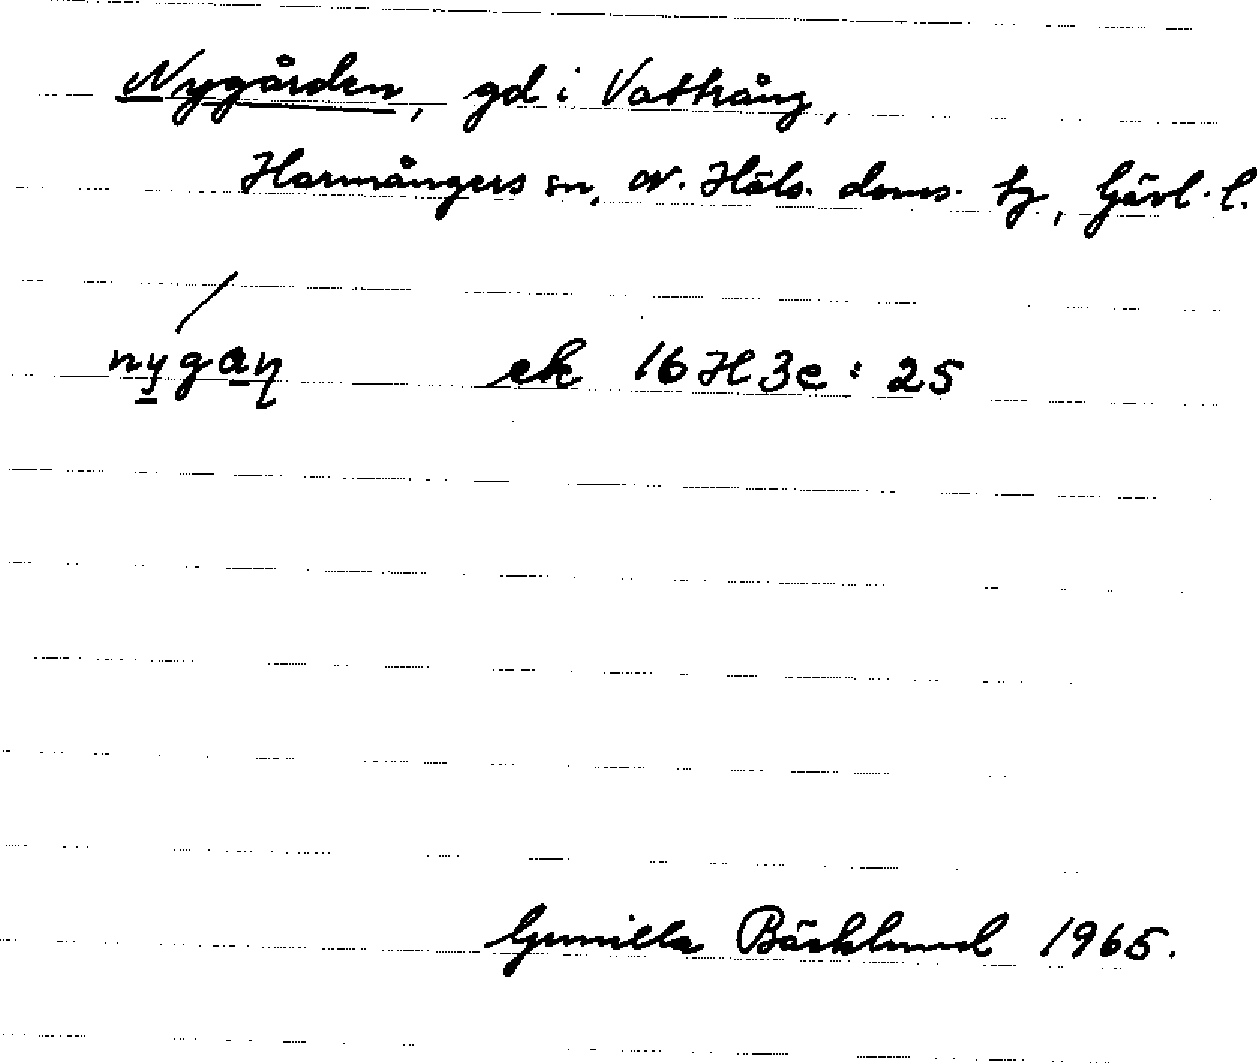 Nygården, gd i Vattrång,
Harmångers sn, n. Häls. doms. tg, Gävl. l.
nygaņ ek 16H3e: 25
Gunilla Bäcklund 1965.